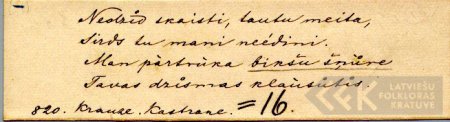 Nedzīd skaisti, tautu meita,
Sirds tu mani neédini.
Man pàrtrūka bikšu šņūre
Tavas dzismas klàusùtis.
820. Krauze. Kastrane. =16.
LATVIEŠU
FOLKLORAS
KRĀTUVE